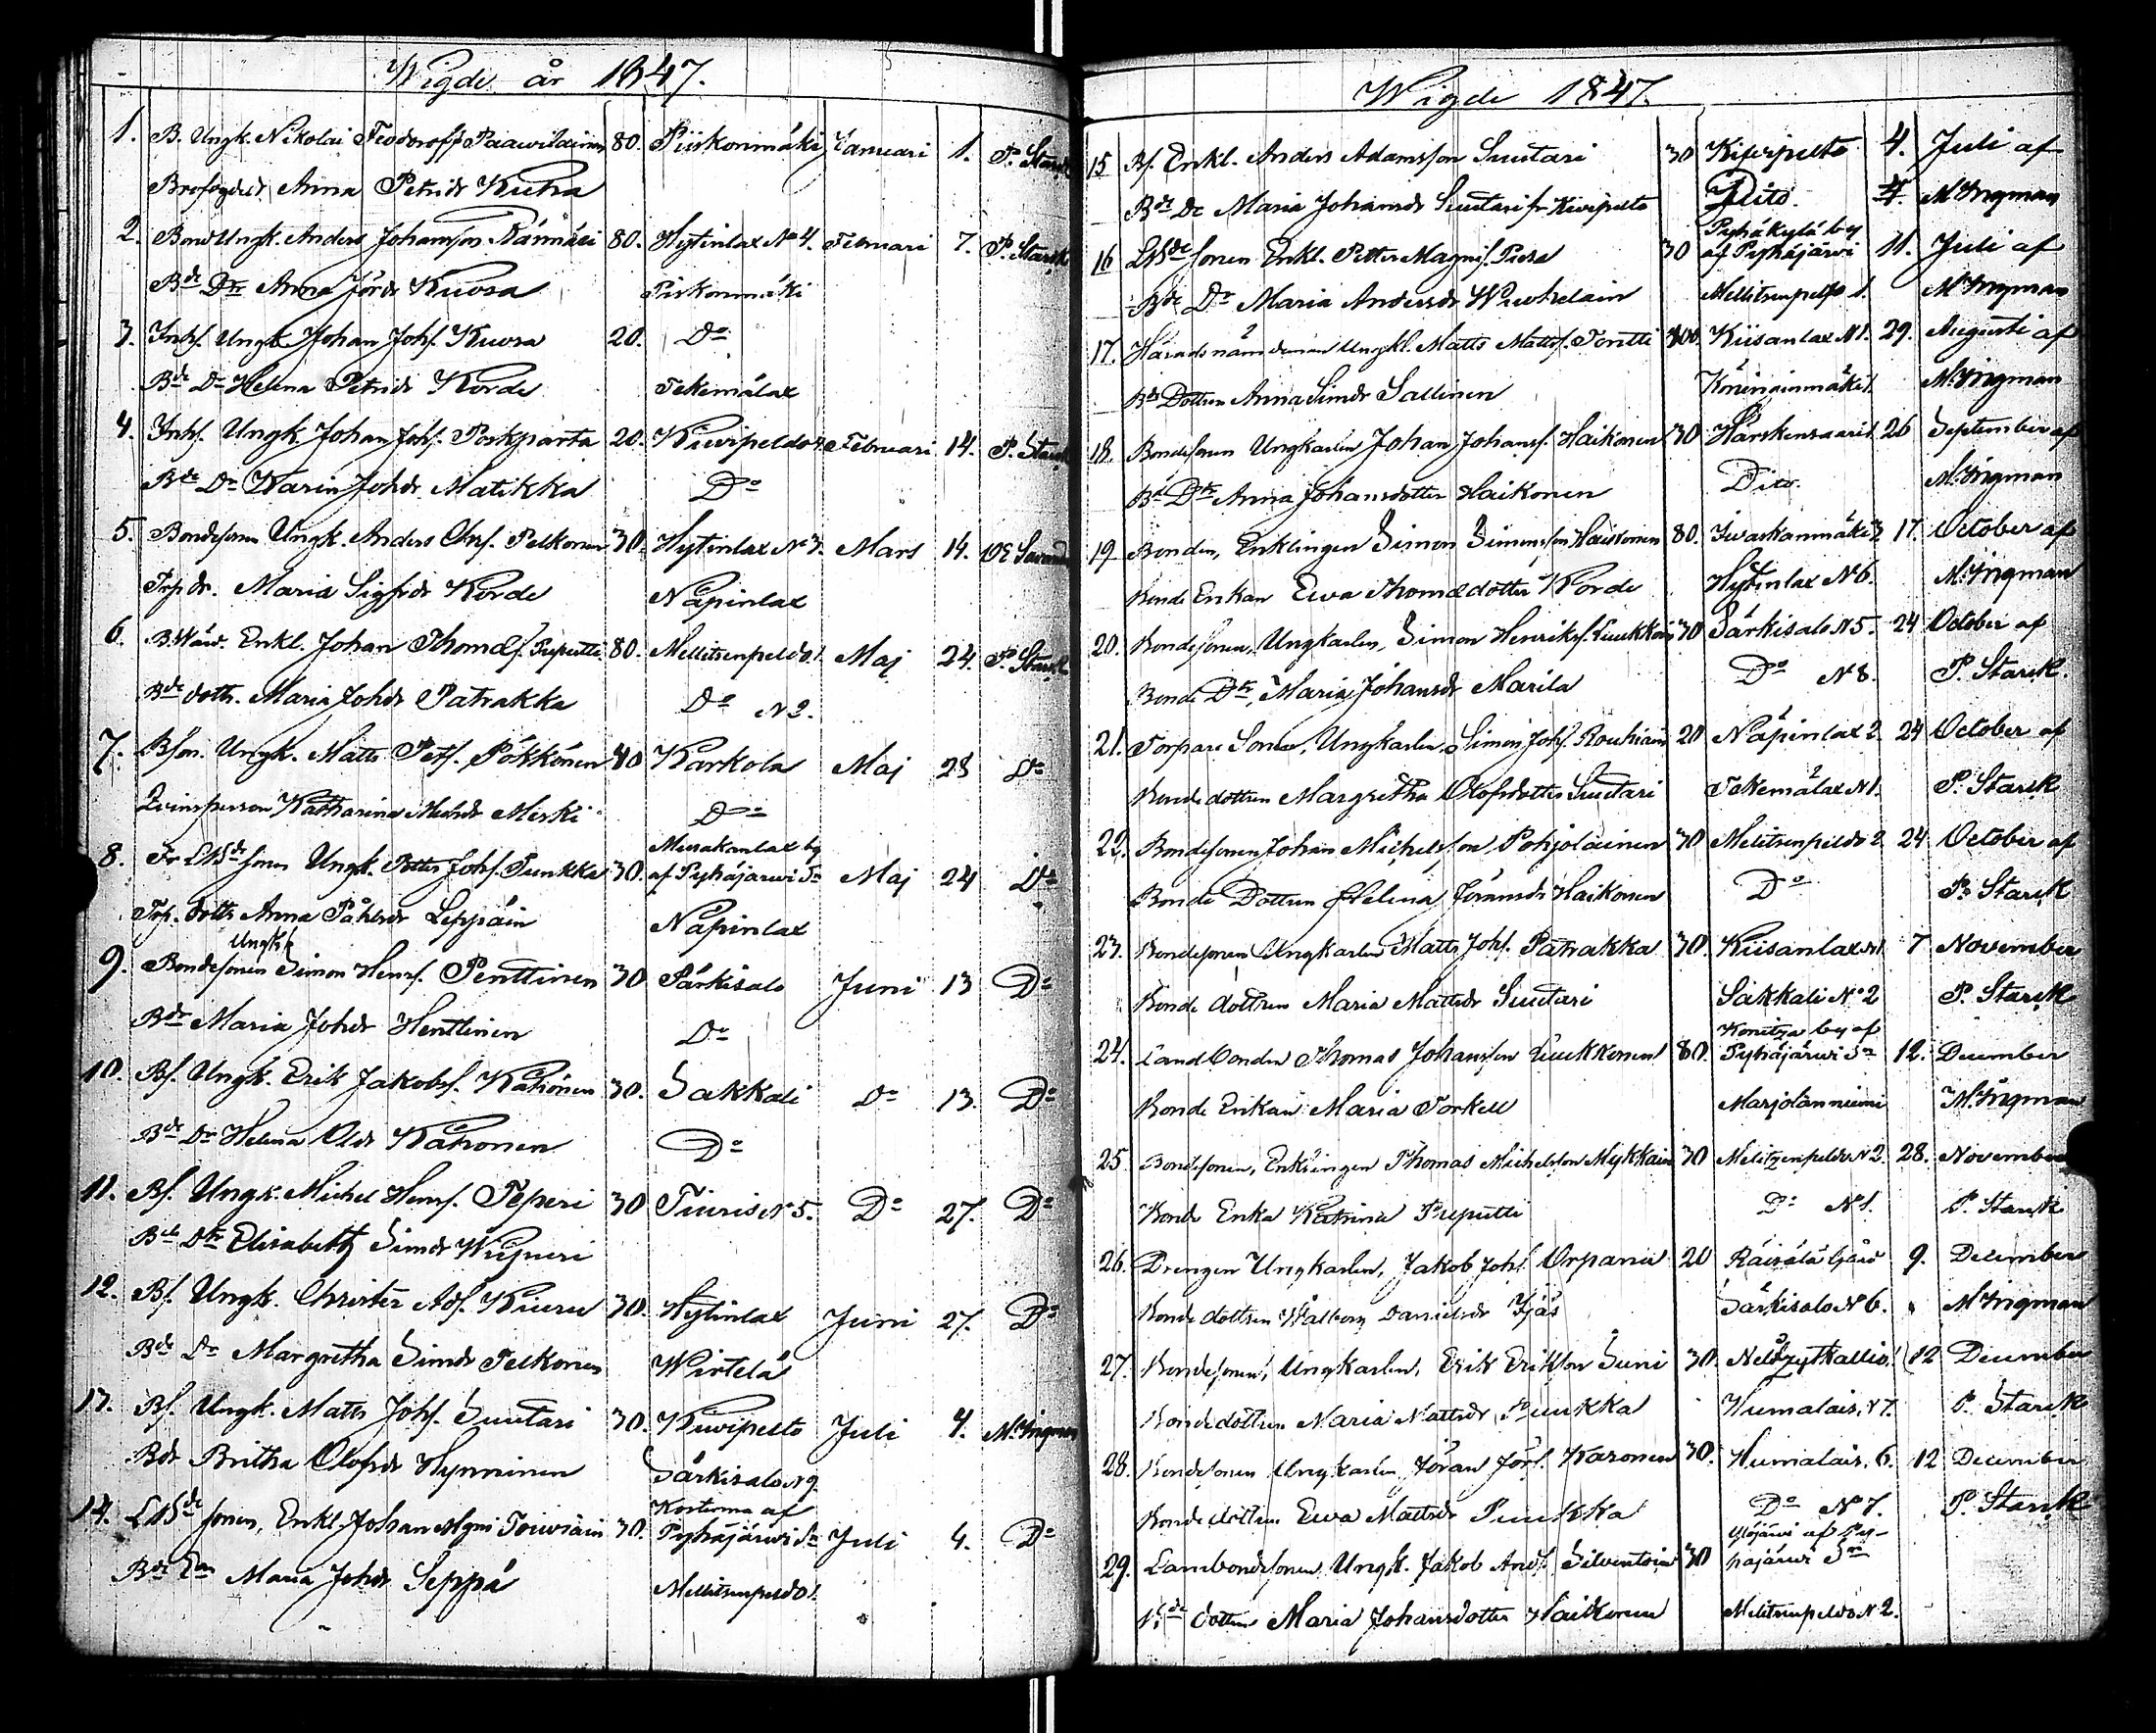 Wigde år 1847.
1. B. Ungk. Nikolai Feodoroff Paawilainen 80. Piiskonmäki Januari 1. P. Starck
Anna Petridr Kuha
2. Bond Ungk. Anders Johansson Nämnäsi 80. Hytinlax No 4. Februari 7. P. Starck
Bde Dtr Anna Jördr Kuosa Piskonmäki
3. Inhs. Ungk. Johan Johs. Kuosa 20. Do
Bde Dr Helena Petridr Korde Tekemälax
4. Inhs. Ungk. Johan Johs. Poskiparta 20. Kiwipeldo Februari 14. P. Starck
Bde Dr Karin Johdr Matikka Do
5. Bondesonen Ungk. Anders Chrs. Pelkonen 30. Hytinlax No 3. Mars 14.
Trp dr. Maria Sigfrdr Korde Näpinlax
6. B.Wäw. Enkl. Johan Thomæs. Preputti 80. Mellitsenpeldo 1. Maj 24. P. Starck
Bde dottr. Maria Johdr Patrakka Do N 2.
7. Bson. Ungk. Matts Pets. Pökkönen 80 Karkola Maj 23 Do
Qvinsperson Katharina Michdr Mirki Do
8. Fr LBde sonen Ungk. Petter Johs. Tunkka 30. Musakanlax by af Pyhäjärwi Sn Maj 24 Do
Trp. dottr Anna Påhlsdr Leppäin Näpinlax
9. Bondesonen Ungk. Simon Henrs. Penttinen 30 Särkisalo Juni 13 Do
Bdr Maria Johdr Henttinen Do
10. Bs. Ungk. Erik Jakobs. Kähönen 30. Sakkali Do 13. Do
Bde Dr Helena Oldr Kähonen Do
11. Bs. Ungk. Michel Henrs. Peperi 30 Tiuris N 5. Do 27. Do
Bde Dtr Elisabeth Simdr
12. Bs. Ungk. Christer Ads. Kiuru 30. Hytinlax Juni 27. Do
Bde Dr Margretha Simdr Pelkonen Wirtelä
13. Bs. Ungk. Matts Johs. Suutari 30. Kiwipelto Juli 4. M. Ingman
Bdr Britha Olofsdr Hynninen Särkisalo N 9.
14. LBde sonen, Enkl. Johan Mgns Toiwiain 30. Kosterma af Pyhäjärwi Sn Juli 4. Do
Bde Ean Maria Johdr Seppä Mellitsenpeldo 1.
Wigde 1847.
15 Bs. Enkl. Anders Adamsson Suutari 30 Kiwipelto 4. Juli af
Bde Dr Maria Johansdr Suutari fr Kiwipelto Dito. 4. M Ingman
16 LBde sonen Enkl. Petter Magnis. Piesa 30 Pyhäkylä by af Pyhäjärwi 11. Juli af
Bde Dr Maria Andersdr Wiuhelain Mellitsenpeldo 1. M Ingman
17. Häradsnämdeman Ungkl. Matts Matts. Torttti 100. Kiisanlax N 1. 29. Augusti af
Bde Dottren Anna Simdr Sallinen Köninginmäki 1. M. Ingman
18. Bondesonen Ungkarlen Johan Johans. Haikonen 30 Härskensaari 1. 26 September af
Bd Dtr Anna Johansdotter Haikonen Dito. M. Ingman
19 Bonden, Enklingen Simon Simonsson Haikonen 80. Iwaskanmäki 3 17. October af
Bonde Enkan Ewa Thomædotter Korde Hytinlax N 6. M. Ingman
20. Bondesonen, Ungkarlen, Simon Henriks. Luukkain 30 Särkisalo N 5. 24 October af
Bonde Dtr, Maria Johansdr Marila Do N 8. P. Starck.
21. Torpare Sonen, Ungkarlen, Simon Johs. Rouhiain 20 Näpinlax 2. 24 October af
Bonde dottren Margretha Olofsdotter Suutari Tekemälax N 1. P. Starck
22. Bondesonen Johan Michelsson Pohjolainen 30 Melitsenpeldo 2 24 October af
Bonde Dottren Helena Jöransdr Haikonen Do P. Starck
23. Bondesonen Ungkarlen Matts Johs. Patrakka 30. Kiisanlax N 1 7 November
Bonde dottren Maria Mattsdr Suutari Sakkali No 2 P. Starck
24. Landbonden Thomas Johansson Luukkonen 80. Konitza by af Pyhäjärwi Sn 12. December
Bonde Enkan Maria Torkell Marjolanniemi M. Ingman
25 Bondesonen, Enklingen Thomas Michelsson Mykkäin 30 Melitzenpeldo N 2. 28. November
Bonde Enka Katrina Preputti Do N 1. P. Starck
26. Drengen Ungkarlen, Jakob Johs. Orpana 20 Räisälä Gård 9. December
Bonde dottren Walborg Danielsdr Ijäs Särkisalo N 6. " M Ingman
27. Bondesonen, Ungkarlen, Erik Eriksson Suni 30. 12 December
Bondedottren Maria Mattsdr Puukka Humalais. N 7. P. Starck
28. Bondesonen Ungkarlen Jöran Jörs. Kasonen 30. Humalais. 6. 12 December
Bonde dottren Ewa Mattsdr Puukka Do N 7. P. Starck
29. Lambondesonen Ungk. Jakob Ands. Silventoin 30 Ylöjärwi af Pyhäjärwi Sn
Bde dottren Maria Johansdotter Haikonen Melitsenpeldo N 2.